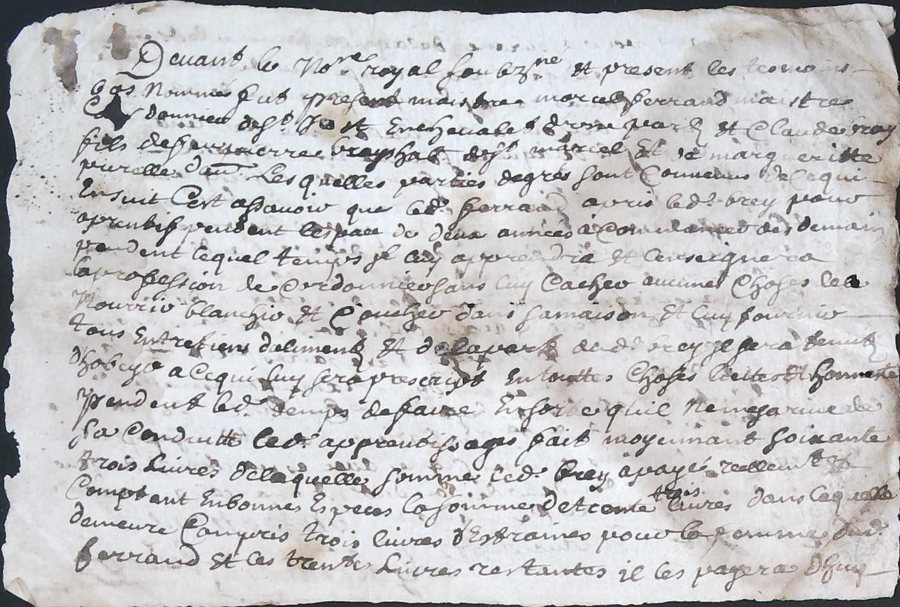 Devant le No.re royal soubz.ne et present les temoins
bas nommés fut present maistre marcel ferrand maistre
Cordonnier de St. Just En chevalet d'une part et Claude brey
fils de feu pierre brey hab. de St. marcel Et de margueritte
Lesquelles parties de gres sont Convenus de Ce qui
Ensuit C'est assavoir que led. ferrand a pris led. brey pour
aprentif pendent lespace de deux années a Commancer des demain
pendent lequel temps jl luy apprendra et Enseignera
la profession de Cordonnier sans luy Cacher aucune Choses le
Nourrir blanchir Et Coucher dans sa maison Et luy fournir
tous Entretiens d'eliments et de la part dud. brey jl sera tenu
d'hobeyr a Ce qui luy sera prescript En touttes Choses licites Et honneste
pendent led. temps de faire En sorte quil
sa Conduitte led. apprentissages fait moyennant soixante
trois Livres de laquelle somme led. brey a payé reellem.t
Comptant En bonnes Especes la somme de trente trois livres dans laquelle
demeure Compris trois livres d'Estraines pour la femme dud.
ferrand et les trente Livres restantes jl les payera d'huy